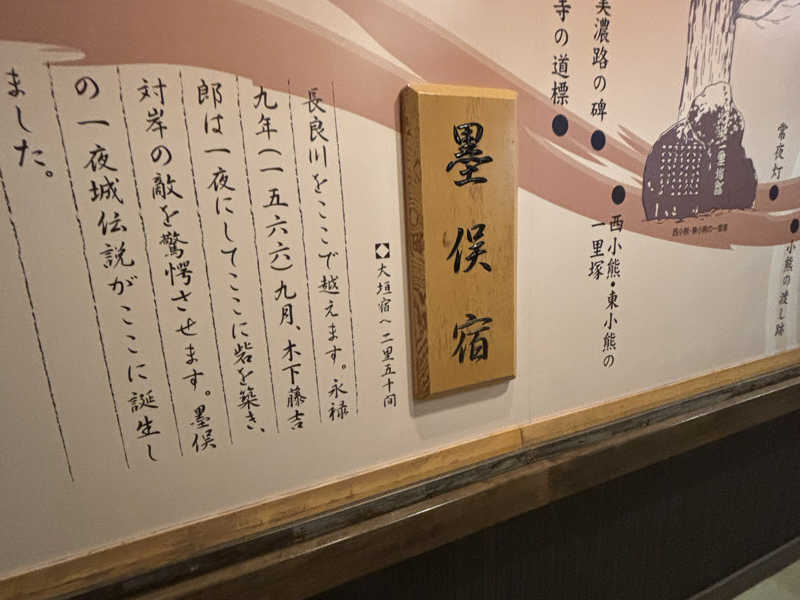 常夜灯
小熊の渡し跡
西小熊・東小熊の
一里塚
西小熊・東小熊の一里塚
一里塚跡
美濃路の碑
寺の道標
墨俣宿
大垣宿へ二里五十間
長良川をここで越えます。永禄
九年(一五六六)九月、木下藤吉
郎は一夜にしてここに砦を築き、
対岸の敵を驚愕させます。墨俣
の一夜城伝説がここに誕生し
ました。